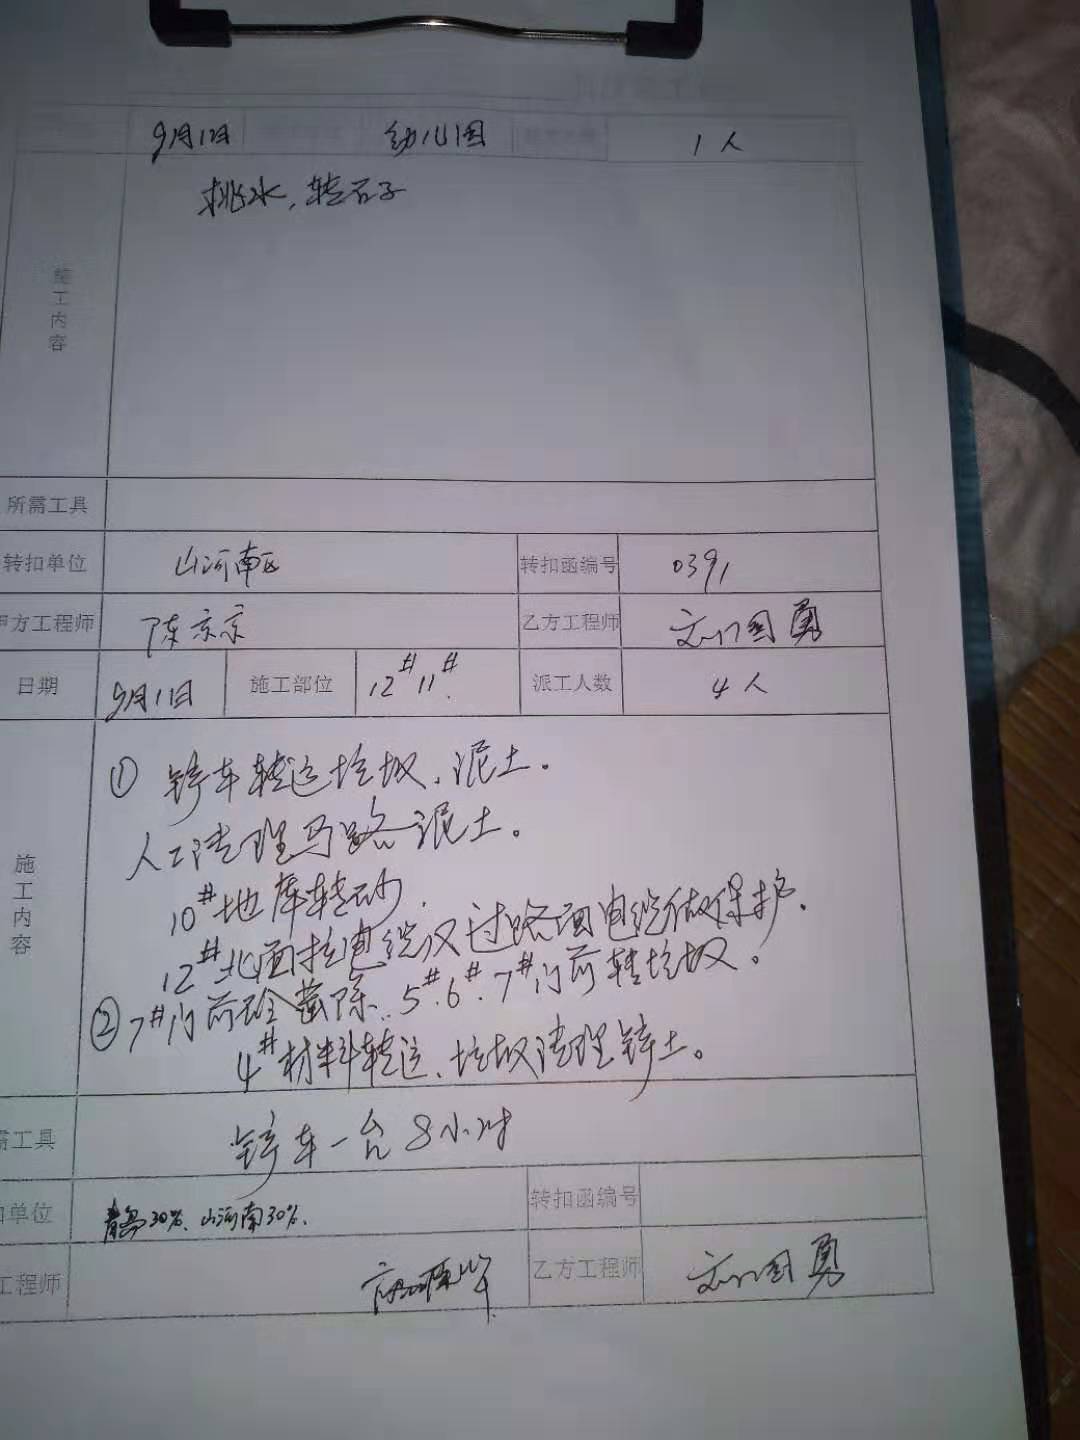 9月1日 幼儿园 1人
挑水，转石子
施工内容
所需工具
转扣单位 山河南区 转扣函编号 0391
甲方工程师 陈京京 乙方工程师 国勇
日期 9月1日 施工部位 12# 11# 派工人数 4人
施工内容
① 铲车转运垃圾、泥土。
人工清理马路泥土。
10#地库转砂.
12#北面挖电缆仅过路面电缆做保护.
② 7#门前砼凿除. 5#.6#.7#门前转垃圾。
4#材料转运、垃圾清理铲土。
需工具 铲车一台8小时
扣单位 青岛30%、山河南30%. 转扣函编号
工程师 乙方工程师 国勇